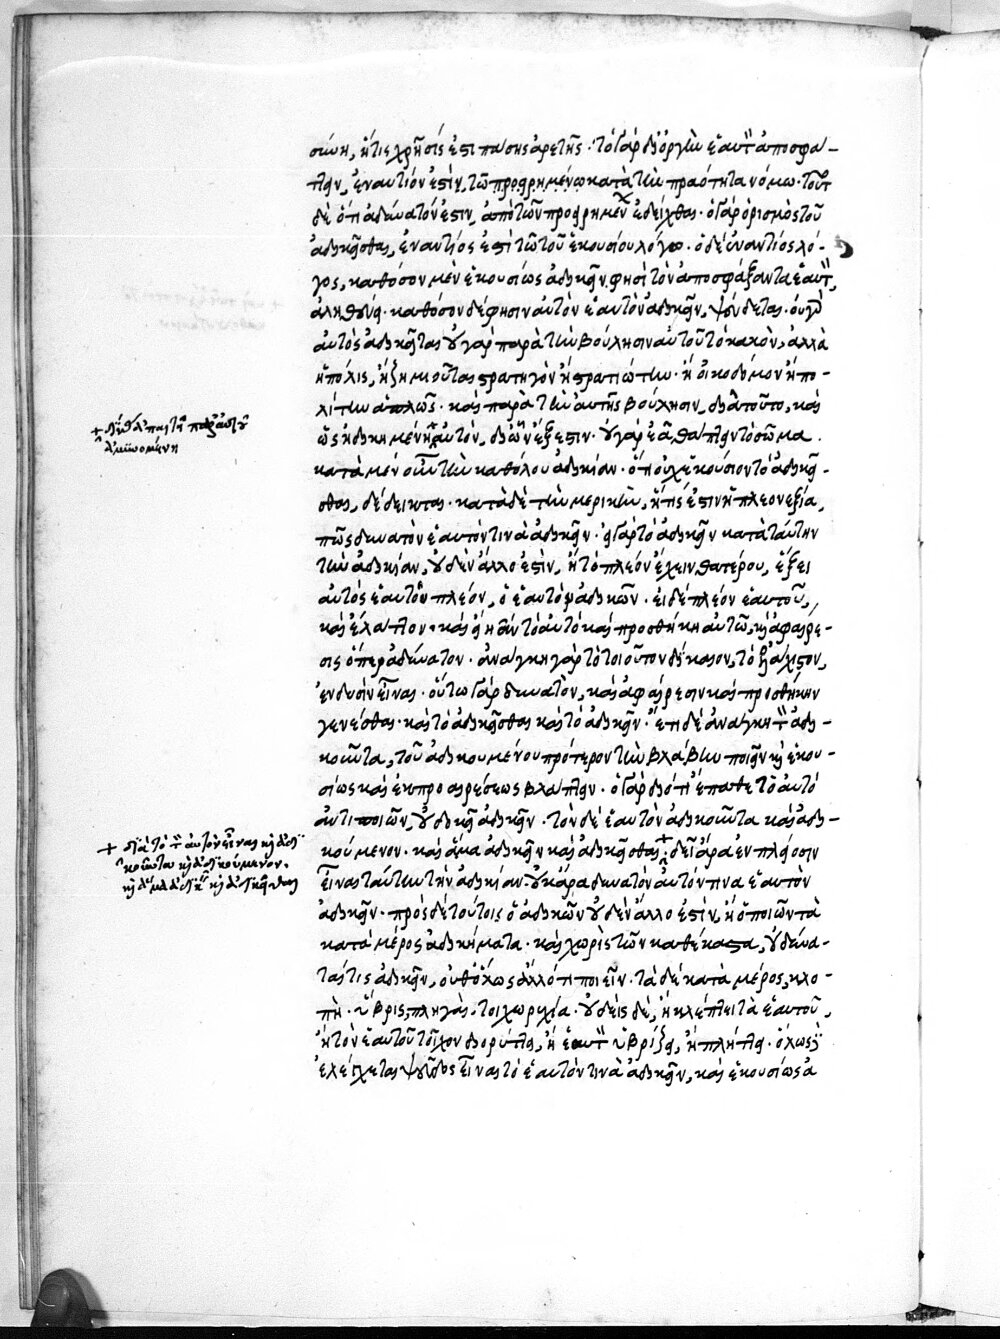 σύνη, ἥτις χρῆσίς ἐστι πάσης ἀρετῆς· τὸ γὰρ δι᾽ ὀργὴν ἑαυτὸν ἀποσφά-
τειν, ἐναντίον ἐστὶν, τῶ προειρημένω κατὰ τὴν πραότητα νόμω· τοῦτο
δὲ ὅτι ἀδύνατόν ἐστιν, ἀπὸ τῶν προειρημένων ἐδείχθη· ὁ γὰρ ὁρισμὸς τοῦ
ἀδικεῖσθαι, ἐναντίος ἐστὶ τῶ τοῦ ἑκουσίου λόγω· ὁ δὲ ἐναντίος λό-
γος, καθόσον μὲν ἑκουσίως ἀδικεῖν φησὶ τὸν ἀποσφάξαντα ἑαυτὸν,
ἀληθεύει· καθόσον δέ φησιν αὐτὸν ἑαυτὸν ἀδικεῖν, ψεύδεται· οὐ γὰρ
αὐτὸς ἀδικεῖται οὐ γὰρ παρὰ τὴν βούλησιν αὐτοῦ τὸ κακὸν, ἀλλὰ
ἡ πόλις, ἡ ζημιοῦται στρατηγὸν ἢ στρατιώτην· ἢ οἰκοδόμον ἢ πο-
λίτην ἁπλῶς· καὶ παρὰ τὴν αὐτῆς βούλησιν, διὰ τοῦτο, καὶ
ὡς ἠδικημένη αὐτὸν, δι᾽ ὧν ἔξεστιν· οὐ γὰρ ἐᾶ θάπτειν τὸ σῶμα.
κατὰ μὲν οὖν τὴν καθόλου ἀδικίαν· ὅτι οὐχ ἑκούσιον τὸ ἀδικεῖ-
σθαι, δέδεικται· κατὰ δὲ τὴν μερικὴν, ἥτίς ἐστιν ἡ πλεονεξία,
πῶς δυνατὸν ἑαυτόν τινα ἀδικεῖν· εἰ γὰρ τὸ ἀδικεῖν κατὰ ταύτην
τὴν ἀδικίαν, οὐδὲν ἄλλο ἐστὶν, ἢ τὸ πλέον ἔχειν θατέρου, ἕξει
αὐτὸς ἑαυτοῦ πλέον, ὁ ἑαυτὸν ἀδικῶν· εἰ δὲ πλέον ἑαυτοῦ,
καὶ ἔλαττον· καὶ εἴη ἂν τὸ αὐτὸ καὶ προσθήκη αὐτῶ, καὶ ἀφαίρε-
σις ὅπερ ἀδύνατον· ἀνάγκη γὰρ τὸ τοιοῦτον δίκαιον, τὸ ἐξ ἐλάχιστον,
ἐν δυσὶν εἶναι· οὕτω γὰρ δυνατὸν, καὶ ἀφαίρεσιν καὶ προσθήκην
γενέσθαι· καὶ τὸ ἀδικεῖσθαι καὶ τὸ ἀδικεῖν· ἔτι δὲ ἀνάγκη τὸν ἀδι-
κοῦντα, τοῦ ἀδικουμένου πρότερον τὴν βλάβην ποιεῖν καὶ ἑκου-
σίως καὶ ἐκ προαιρέσεως βλάπτειν· ὁ γὰρ διότι ἔπαθε τὸ αὐτὸ
ἀντιποιῶν, οὐ δοκεῖ ἀδικεῖν· τὸν δὲ ἑαυτὸν ἀδικοῦντα καὶ ἀδι-
κούμενον· καὶ ἅμα ἀδικεῖν καὶ ἀδικεῖσθαι· δεῖ ἄρα ἐν πλείοσιν
εἶναι ταύτην τὴν ἀδικίαν· οὐκ ἄρα δυνατὸν αὐτόν τινα ἑαυτὸν
ἀδικεῖν· πρὸς δὲ τούτοις ὁ ἀδικῶν οὐδὲν ἄλλο ἐστὶν, ἢ ὁ ποιῶν τὰ
κατὰ μέρος ἀδικήματα· καὶ χωρὶς τῶν καθέκαστα, οὐ δύνα-
ταί τις ἀδικεῖν, οὐθ᾽ ὅλως ἄλλό τι ποιεῖν· τὰ δὲ κατὰ μέρος, κλο-
πὴ· ὕβρις, πληγαὶ· τοιχωρυχία· οὐδεὶς δὲ, ἢ κλέπτει τὰ ἑαυτοῦ,
ἢ τὸν ἑαυτοῦ τοῖχον διορύττει, ἢ ἑαυτὸν ὑβρίζει, ἢ πλήττει· ὅλως δὲ
ἐλέγχεται ψεῦδος εἶναι τὸ ἑαυτόν τινα ἀδικεῖν, καὶ ἑκουσίως ἀ
+ διὰ τὸ τὸν αὐτὸν εἶναι καὶ ἀδι
κοῦντα καὶ ἀδικούμενον·
καὶ ἅμα ἀδικεῖν καὶ ἀδικεῖσθαι